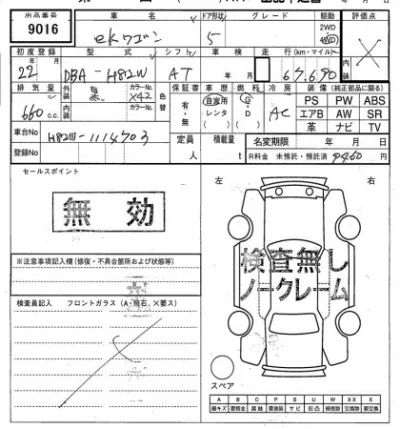 出品番号 車名 ドア形状 グレード 駆動 評価点
9016 ekワゴン 5 2WD
初度登録 型式 シフト 車検 走行(km・マイル) 内装
22年 月 DBA-H82W AT 年 月 67,690
排気量 外装 カラーNo. 色替 保証書 車歴 燃料 冷房 装備(純正部品に限る)
660c.c. 内装 黒 X42 カラーNo. 有・無 自家用 レンタ G・D AC PS PW ABS
エアB AW SR
革 ナビ TV
車台No H82W-1114703 定員 人 積載量 t 名変期限 年 月 日
登録No R料金 未預託・預託済 9460 円
セールスポイント 左 右
無効
検査無し
ノークレーム
※注意事項記入欄(修復・不具合箇所および状態等)
検査員記入 フロントガラス(A・飛石、×要ス)
スペア
A B C P S U W X XX